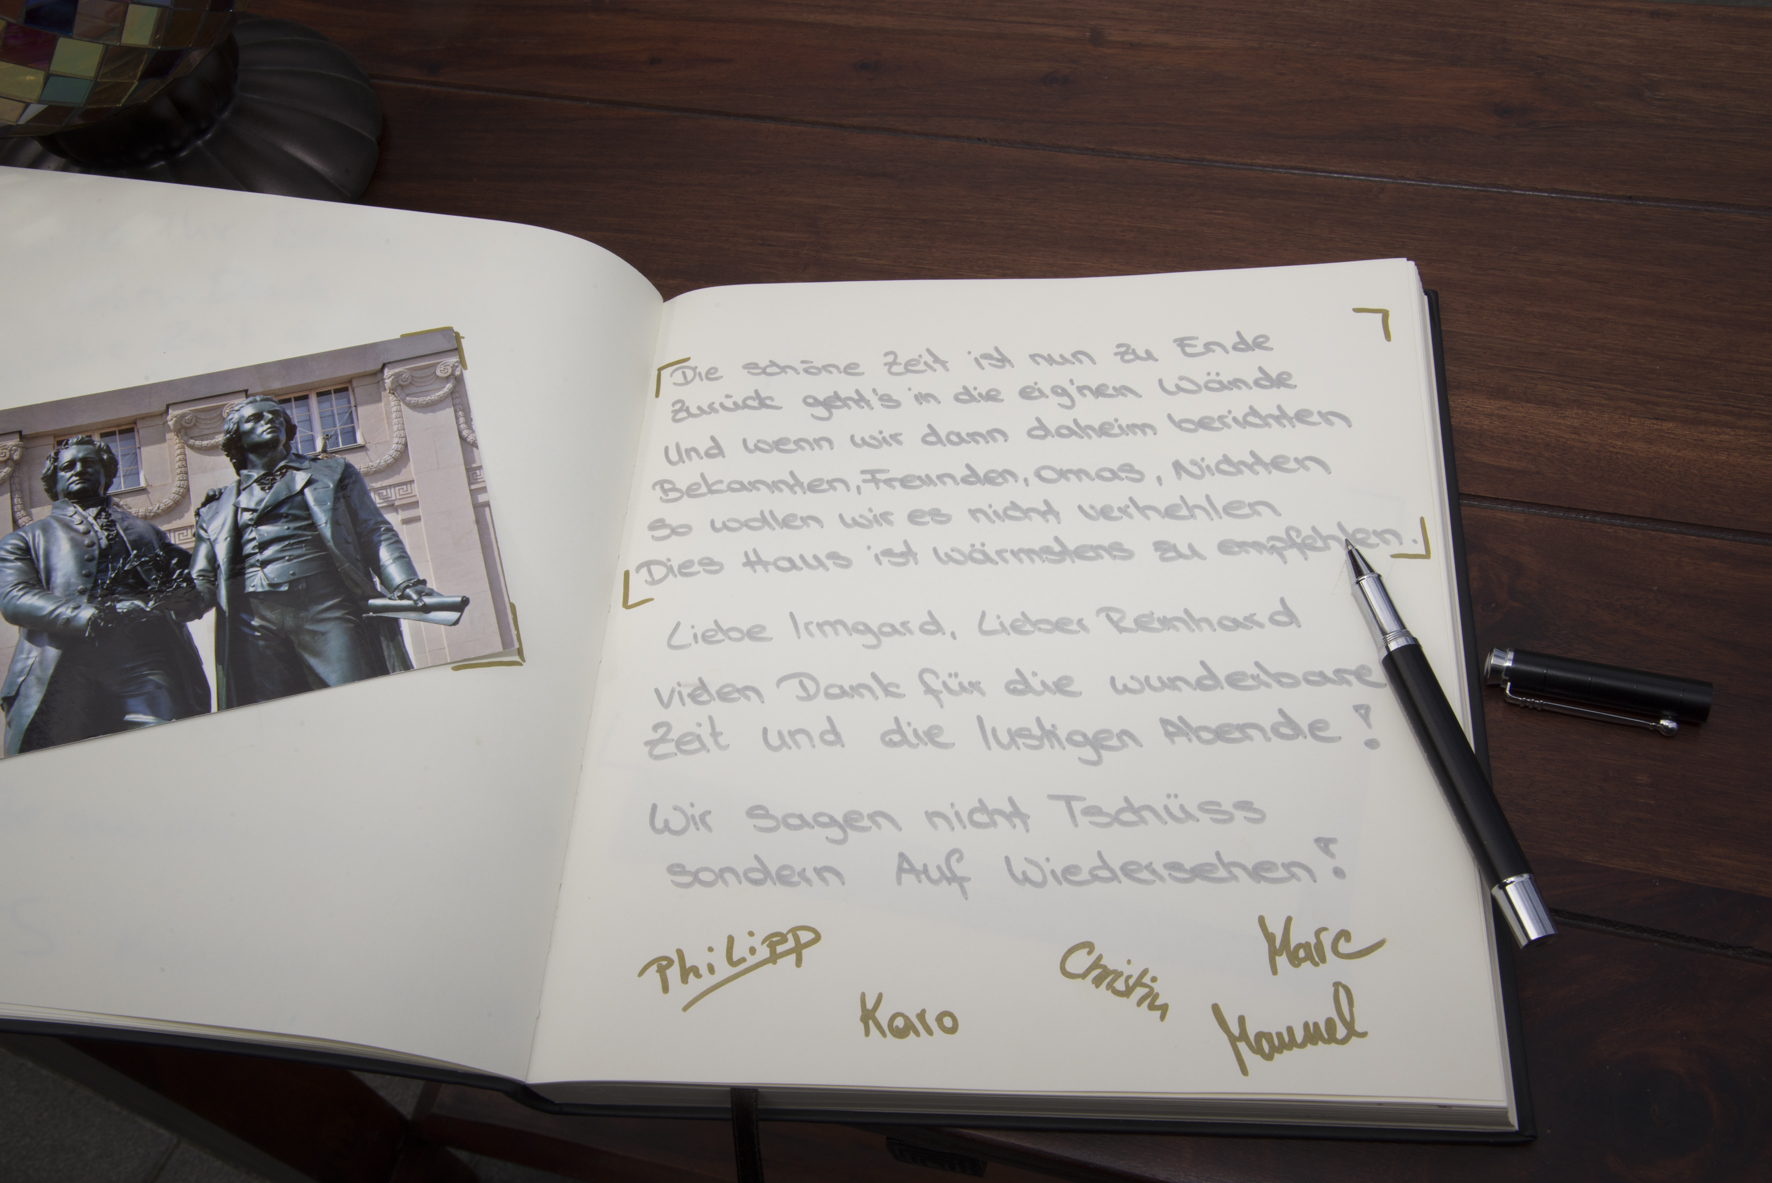 Die schöne Zeit ist nun zu Ende
Zurück geht's in die eig'nen Wände
Und wenn wir dann daheim berichten
Bekannten, Freunden, Omas, Nichten
So wollen wir es nicht verhehlen
Dies Haus ist wärmstens zu empfehlen.
Liebe Irmgard, Lieber Reinhard
vielen Dank für die wunderbare
Zeit und die lustigen Abende!
Wir sagen nicht Tschüss
sondern Auf Wiedersehen!
Philipp
Karo
Christin
Marc
Manuel